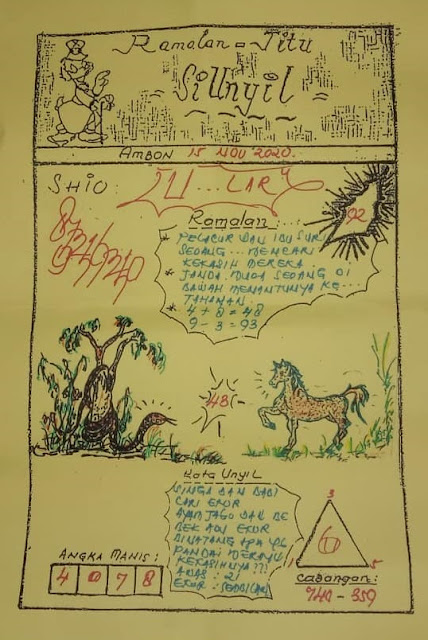 Ramalan = Jitu
Si Unyil
AMBON 15 NOV 2020.
SHIO:
92
Ramalan:....
* PELACUR DAN IBU SUR
SEDANG... MENCARI
KEKASIH MEREKA
* JANDA MUDA SEDANG DI
BAWAH MENANTUNYA KE....
TAHANAN.
* 4 + 8 = 48
9 - 3 = 93
48(-
Kata Unyil
SINGA DAN BABI
CARI EKOR
AYAM JAGO DAN BE
BEK ADU EKOR
BINATANG APA YG
PANDAI MERAYU
KEKASIHNYA???
AWAS: 21
EKOR: SEMBILAN
ANGKA MANIS:
4 0 7 8
3
6
1 5
Cabangan:
740 - 359